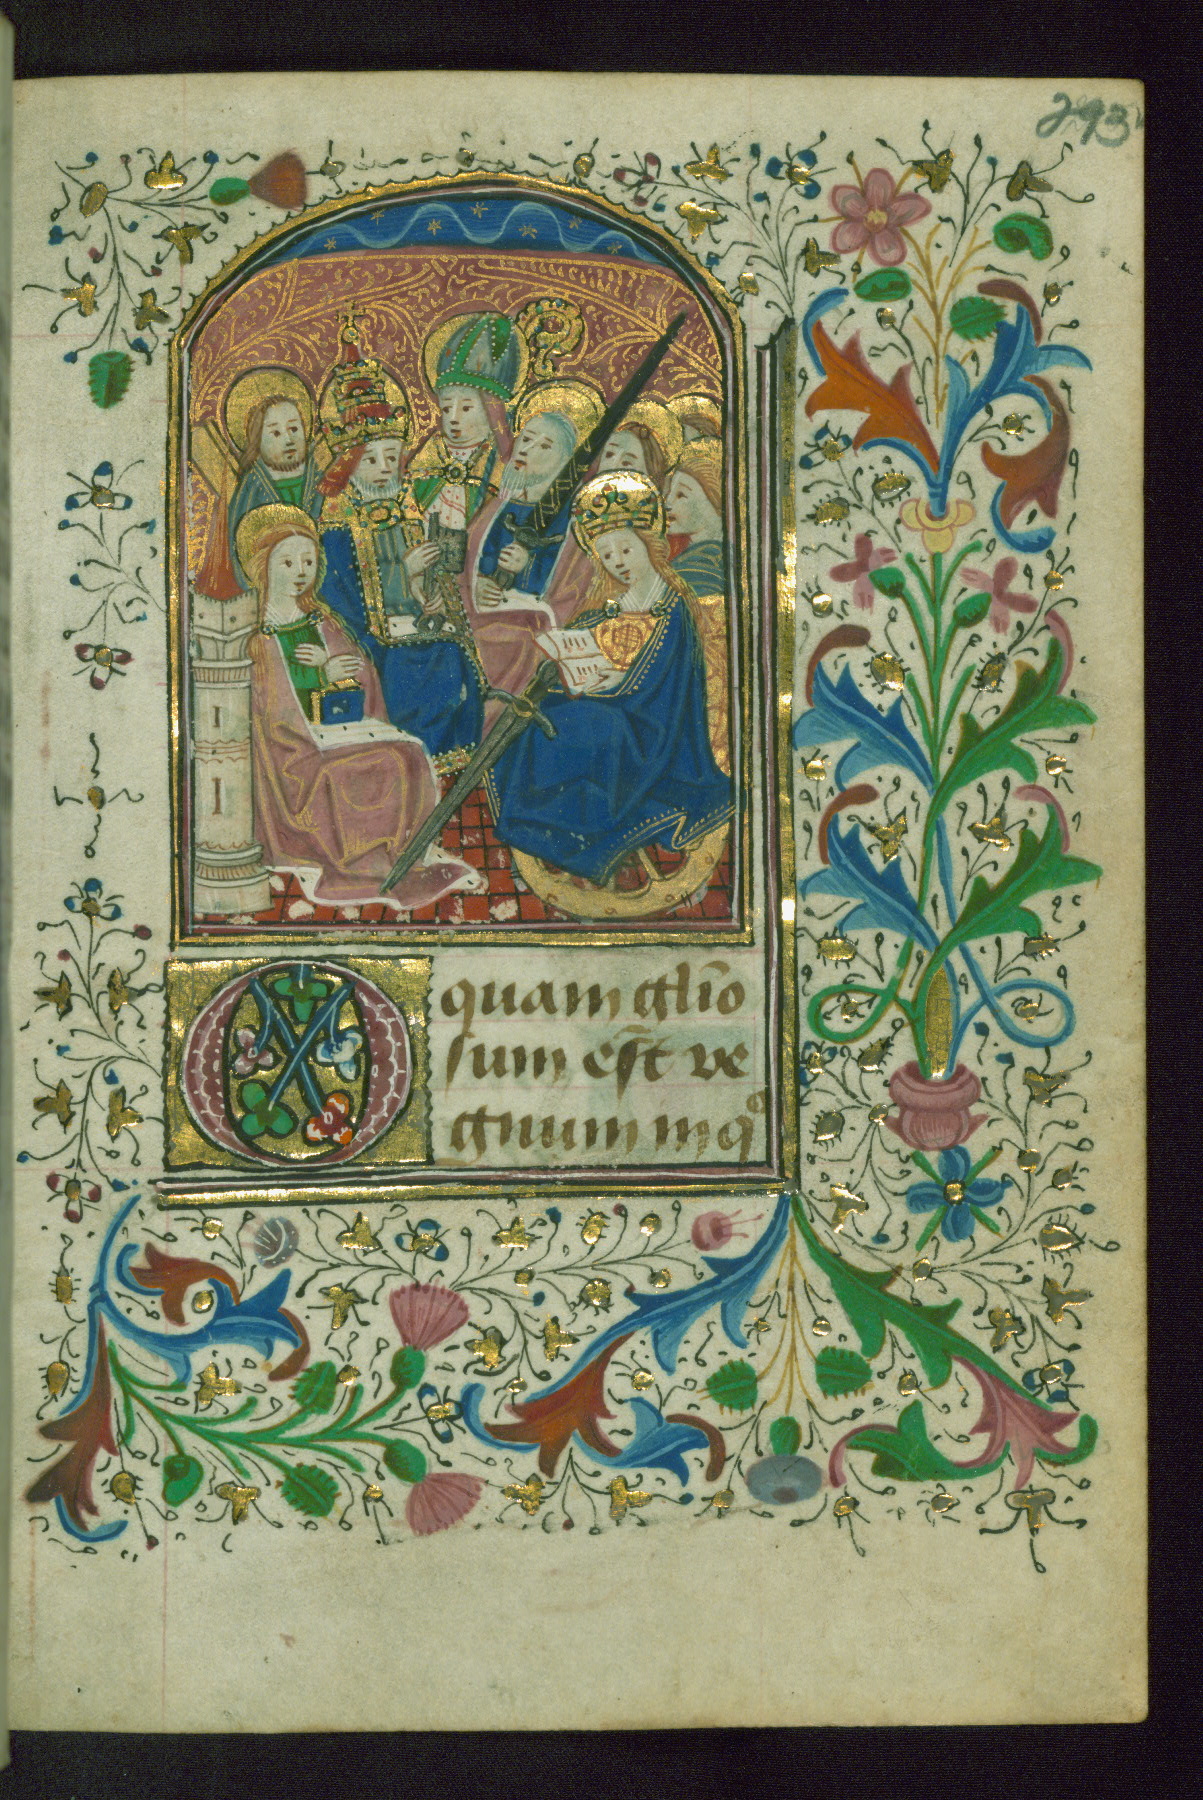 293
O quam glīo
sum est re
gnum in qͦ